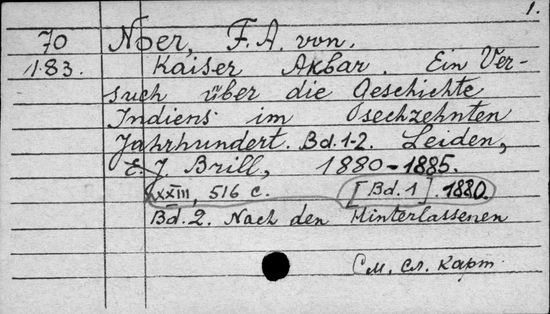 1.
70 Noer, F. A. von.
1.83. Kaiser Akbar. Ein Ver-
such über die Geschichte
Indiens im sechzehnten
Jahrhundert. Bd. 1-2. Leiden,
E. J. Brill, 1880-1885.
XXIII, 516 c. [Bd. 1]. 1880.
Bd. 2. Nach den Hinterlassenen
См. сл. карт.